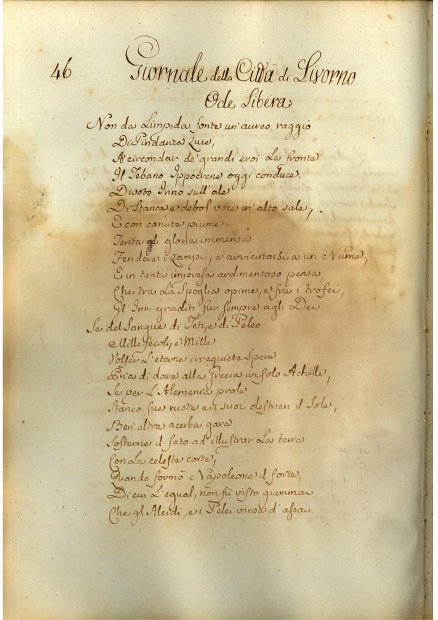 46
Giornale della Città di Livorno
Ode Libera
Non da Limpida fonte un'aureo raggio
Di Pindarica Luce,
A circondar de' grandi eroi La fronte
Il Tebano Ippocrene oggi conduce
Divoto Inno sull'ale
Di Stanca e debol voce in'alto sale,
E con canute piume
Tenta di gloria immensa
Fendere i Campi, e avvicinarsi a un Nume,
E in tanta impresa ardimentoso pensa,
Che tra La Spoglia opime, e fra i trofei,
Gl' Inni graditi fur sempre agli Dei.
Se del Sangue di Teti, e di Peleo
Mille Secoli, e Mille
Volser L'eterne irrequiete Spere
Pria di dare alla Grecia un Solo Achille,
Se per L'Alemenia prole
Stancò sue ruote e i suoi destrieri il Sole,
Ben altra acerba gara
Sostenne il fato ad illustrar La terra
Con La celeste corte,
Quando formò Napoleone il forte,
Di cui L'equal, non fù visto giammai
Che gl' Alcidi, e i Pelei vince d'assai.